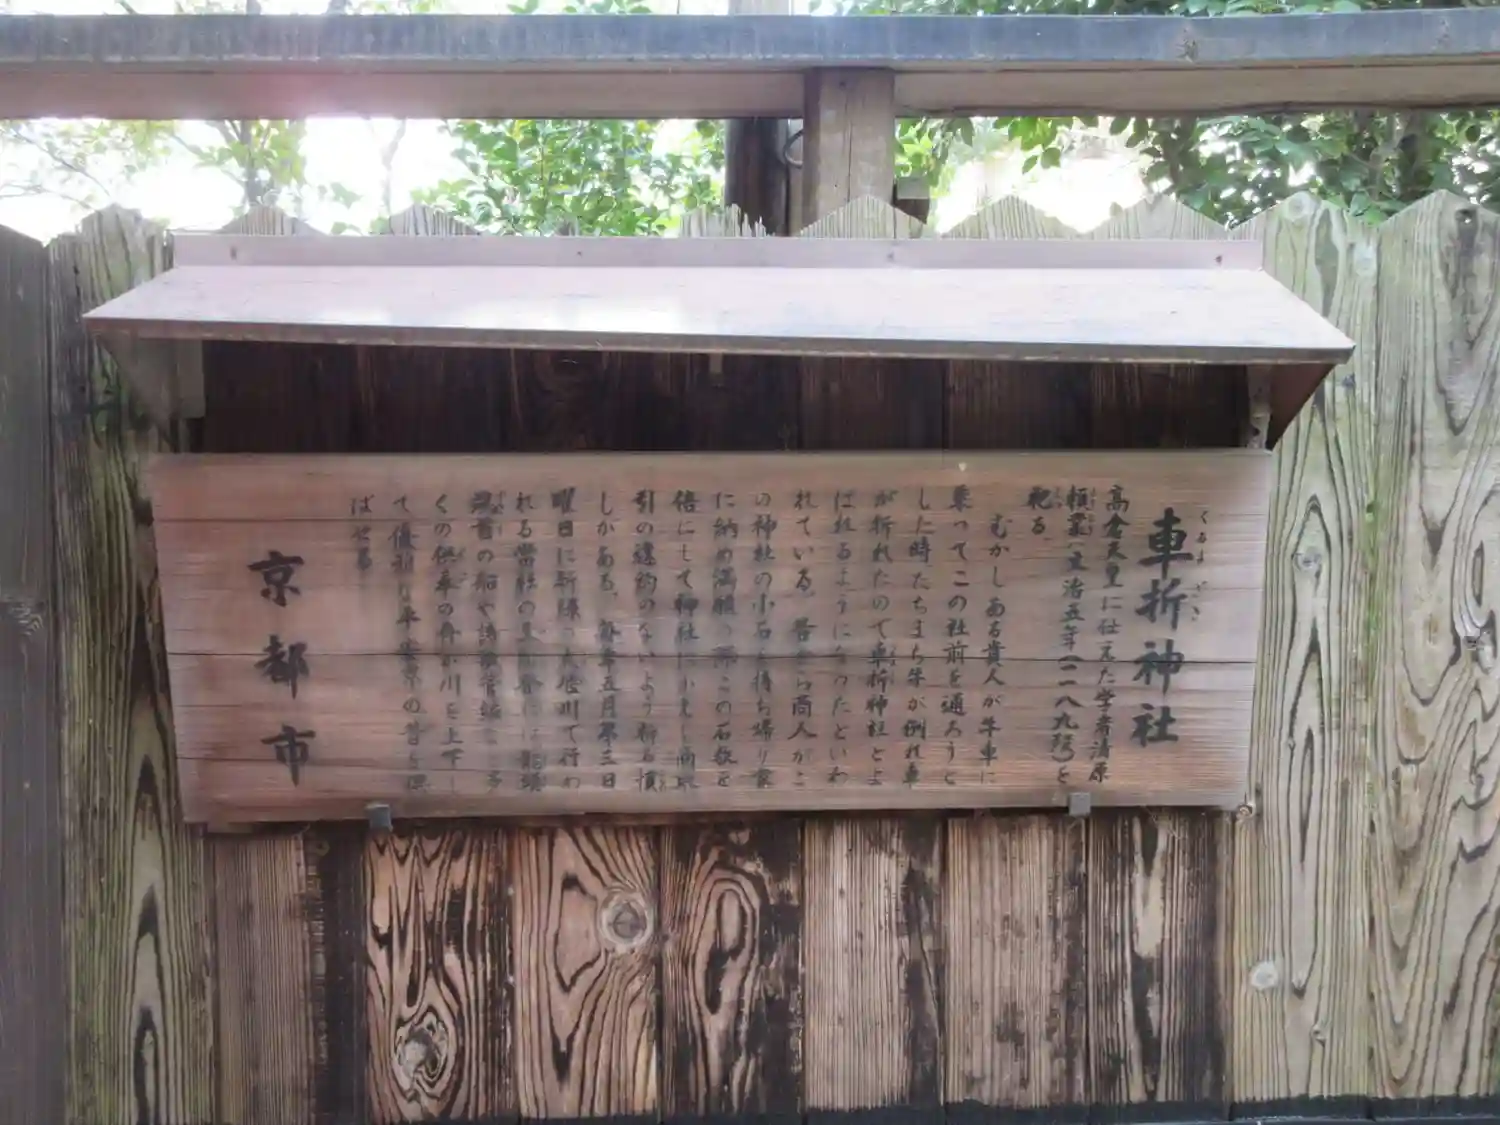 車折神社
くるまざき
高倉天皇に仕えた学者清原
頼業(文治五年(一一八九)歿)を
祀る。
むかしある貴人が牛車に
乗ってこの社前を通ろうと
した時たちまち牛が倒れ車
が折れたので車折神社とよ
ばれるようになったといわ
れている。昔から商人がこ
の神社の小石を持ち帰り家
に納め満願の際この石数を
倍にして神社に
引の違約のないよう祈る慣
しがある。毎年五月第三日
曜日に新緑の大堰川で行わ
れる当社の三船祭には龍頭
鷁首の船や詩歌管絃など多
くの供奉の舟が川を上下し
て優雅な平安京の昔を偲
ばせる
京都市